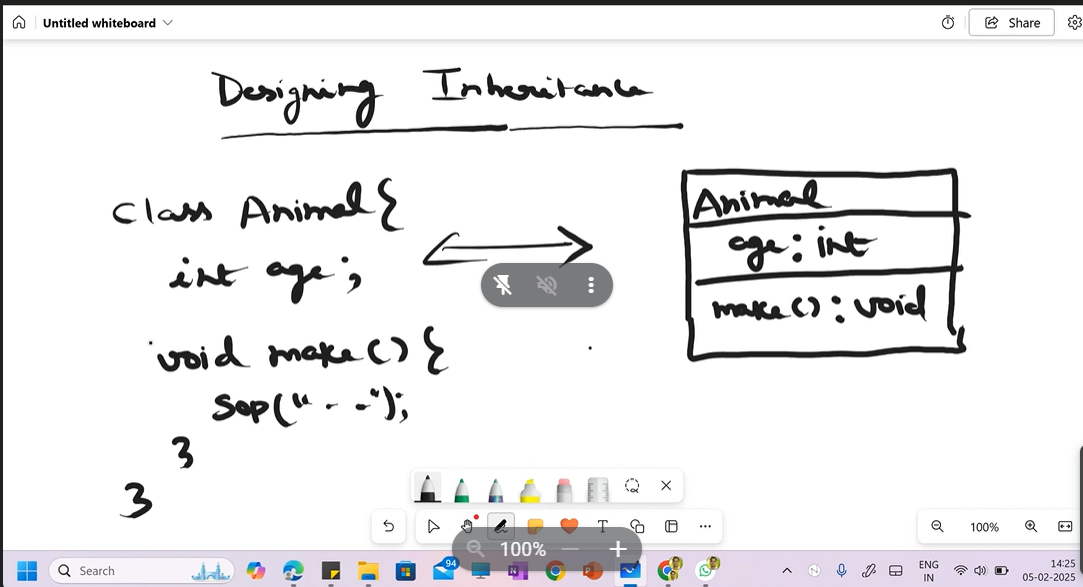 Untitled whiteboard
Share
Designing Inheritance
class Animal {
int age;
void make() {
Sop("--");
}
}
Animal
age: int
make(): void
100%
100%
94
Search
ENG
IN
14:25
05-02-2025